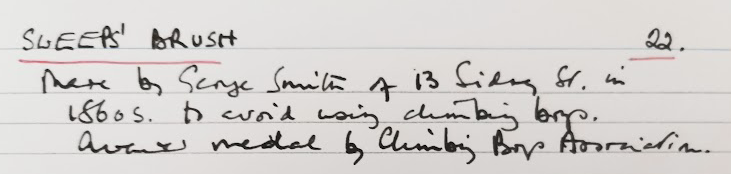 SWEEPS' BRUSH 22.
Made by George Smith of 13 Sidney St. in
1860s. to avoid using climbing boys.
Awarded medal by Climbing Boys Association.